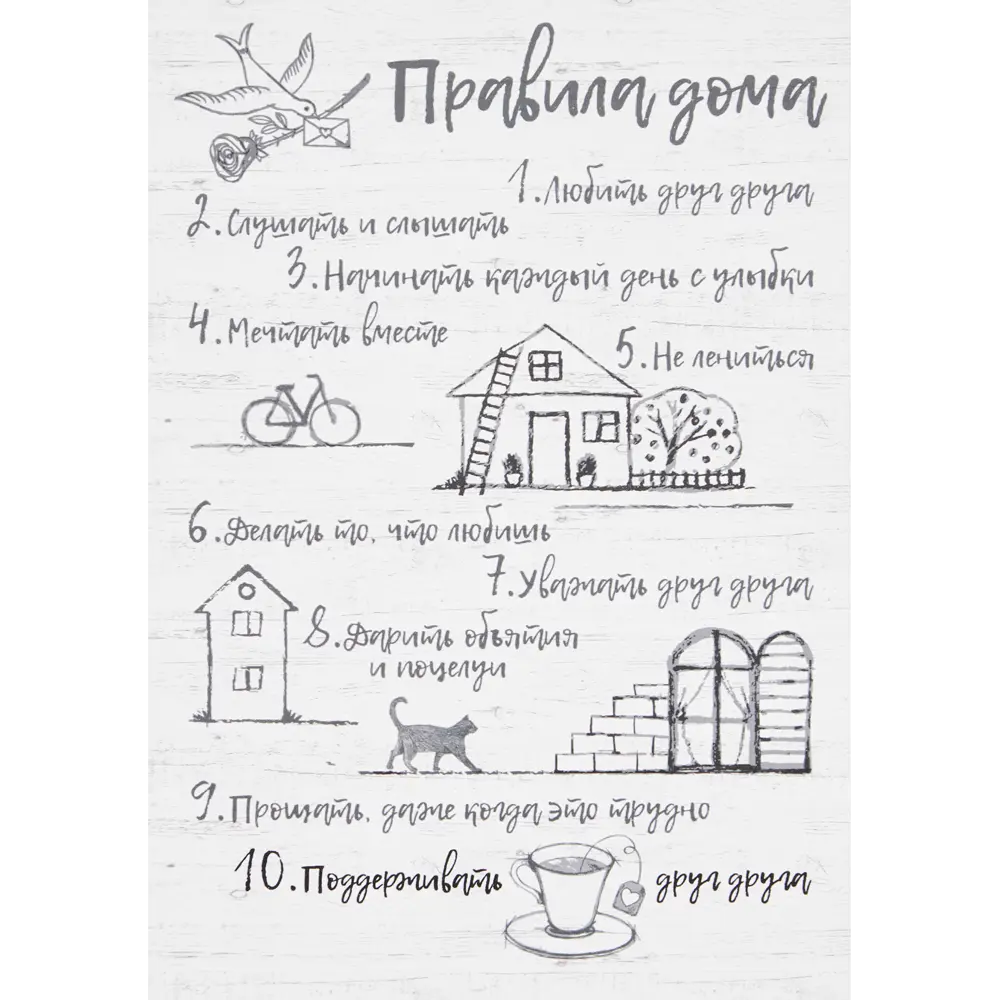 Правила дома
1. Любить друг друга
2. Слушать и слышать
3. Начинать каждый день с улыбки
4. Мечтать вместе
5. Не лениться
6. Делать то, что любишь
7. Уважать друг друга
8. Дарить объятия
и поцелуи
9. Прощать, даже когда это трудно
10. Поддерживать друг друга